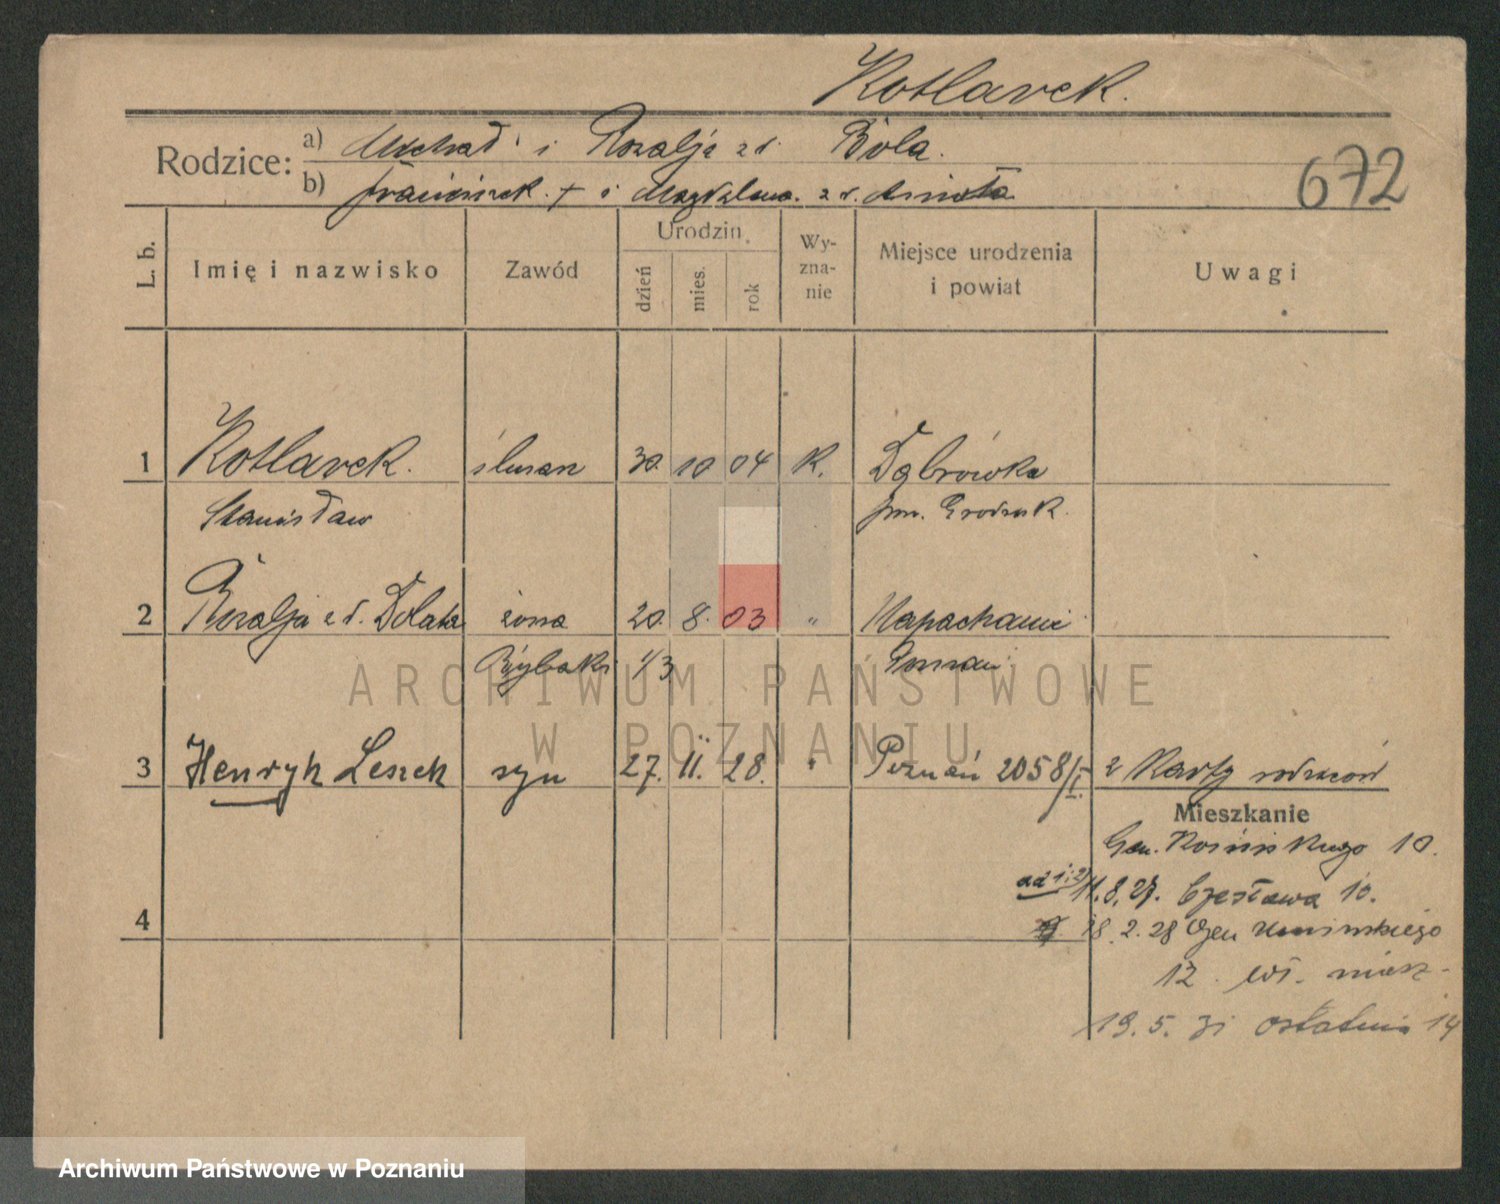 Kotlarek.
Rodzice: a) Michał i Rozalja z d. Bóla.
b) Franciszek + i Magdalena z d.
672
L. b.
Imię i nazwisko
Zawód
Urodzin
dzień
mies.
rok
Wy-
zna-
nie
Miejsce urodzenia
i powiat
Uwagi
1 Kotlarek. ślusarz 30. 10 04 K. Dąbrówka
Stanisław pow. Grodzisk.
2 Rozalja z d. Dolata żona 20. 8. 03 " Napachanie
Rybaki 1/3 Poznań
3 Henryk Leszek syn 27. 11. 28. " Poznań 2058/I. z Karty rodziców
Mieszkanie
Gen. Kosińskiego 10.
ad 1i2/ 11.8.27. Czesława 10.
4
18.2.28 Gen Umińskiego
12. wł. miesz-
19.5.31 Ostatnia 14
ARCHIWUM PAŃSTWOWE
W POZNANIU
Archiwum Państwowe w Poznaniu